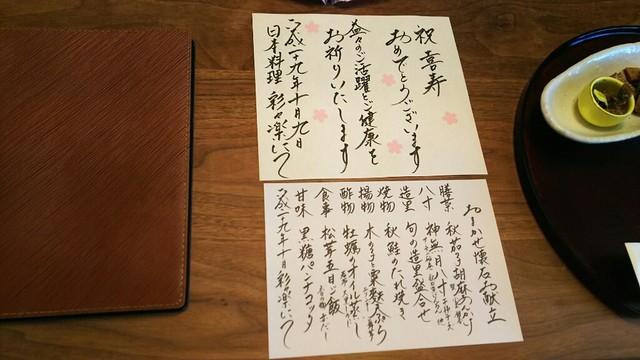 祝喜寿
おめでとうございます
益々のご活躍とご健康を
お祈りいたします
平成二十九年十月九日
日本料理 彩々楽にて
おまかせ懐石お献立
先菜 秋茄子胡麻
八寸 神無月八寸
造里 旬の造里盛合せ
焼物 秋鮭のたれ焼き
揚物 木の子と栗麩天ぷら
酢物 牡蠣のオイル蒸し
食事 松茸五目ご飯
甘味 黒糖パンナコッタ
平成二十九年十月 彩々楽にて